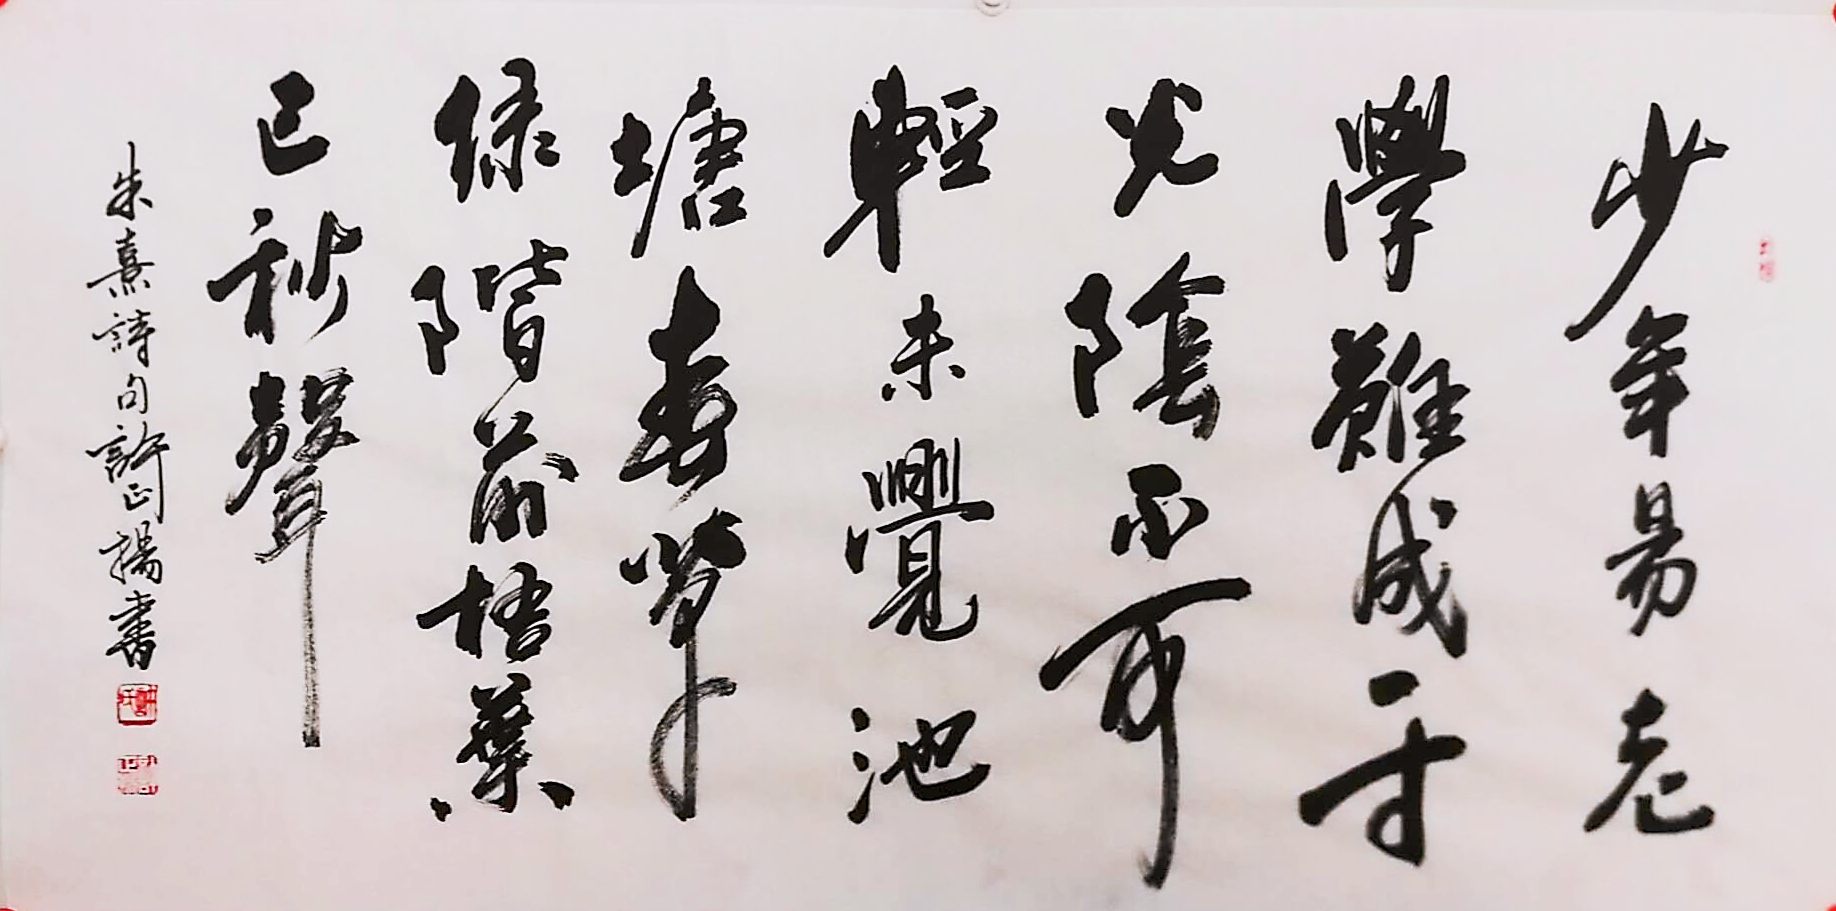 少年易老
學難成一寸
光陰不可
輕未覺池
塘春草
緑階前梧葉
已秋聲
朱熹詩句許正楊書